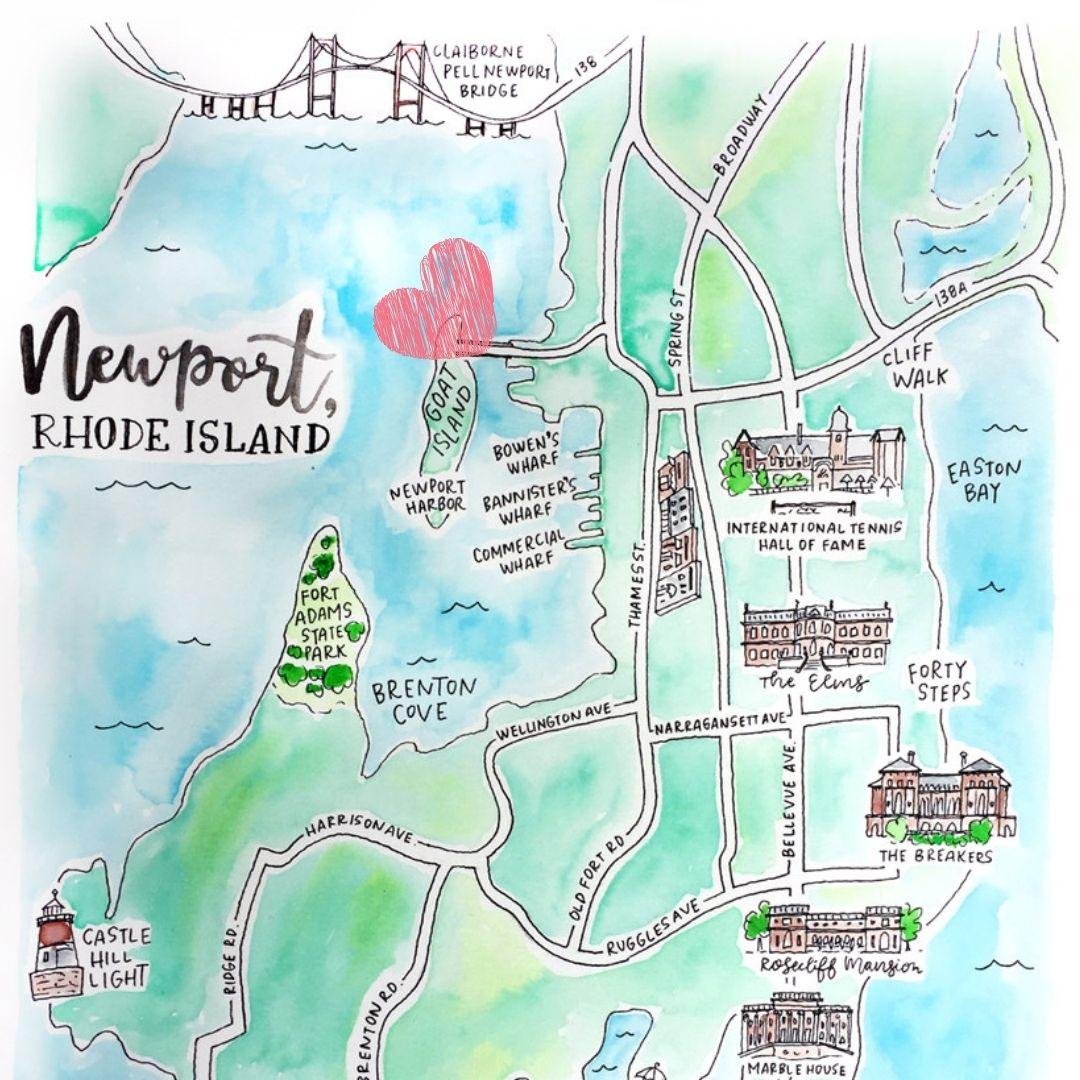 CLAIBORNE
PELL NEWPORT
BRIDGE
138
BROADWAY
138A
SPRING ST
Newport,
RHODE ISLAND
CLIFF
WALK
GOAT
ISLAND
BOWEN'S
WHARF
NEWPORT
HARBOR
BANNISTER'S
WHARF
COMMERCIAL
WHARF
EASTON
BAY
INTERNATIONAL TENNIS
HALL OF FAME
THAMES ST.
FORT
ADAMS
STATE
PARK
The Elms
FORTY
STEPS
BRENTON
COVE
WELLINGTON AVE
NARRAGANSETT AVE
BELLEVUE AVE.
HARRISON AVE.
THE BREAKERS
OLD FORT RD
RUGGLES AVE
CASTLE
HILL
LIGHT
RIDGE RD.
Rosecliff Mansion
BRENTON RD.
MARBLE HOUSE